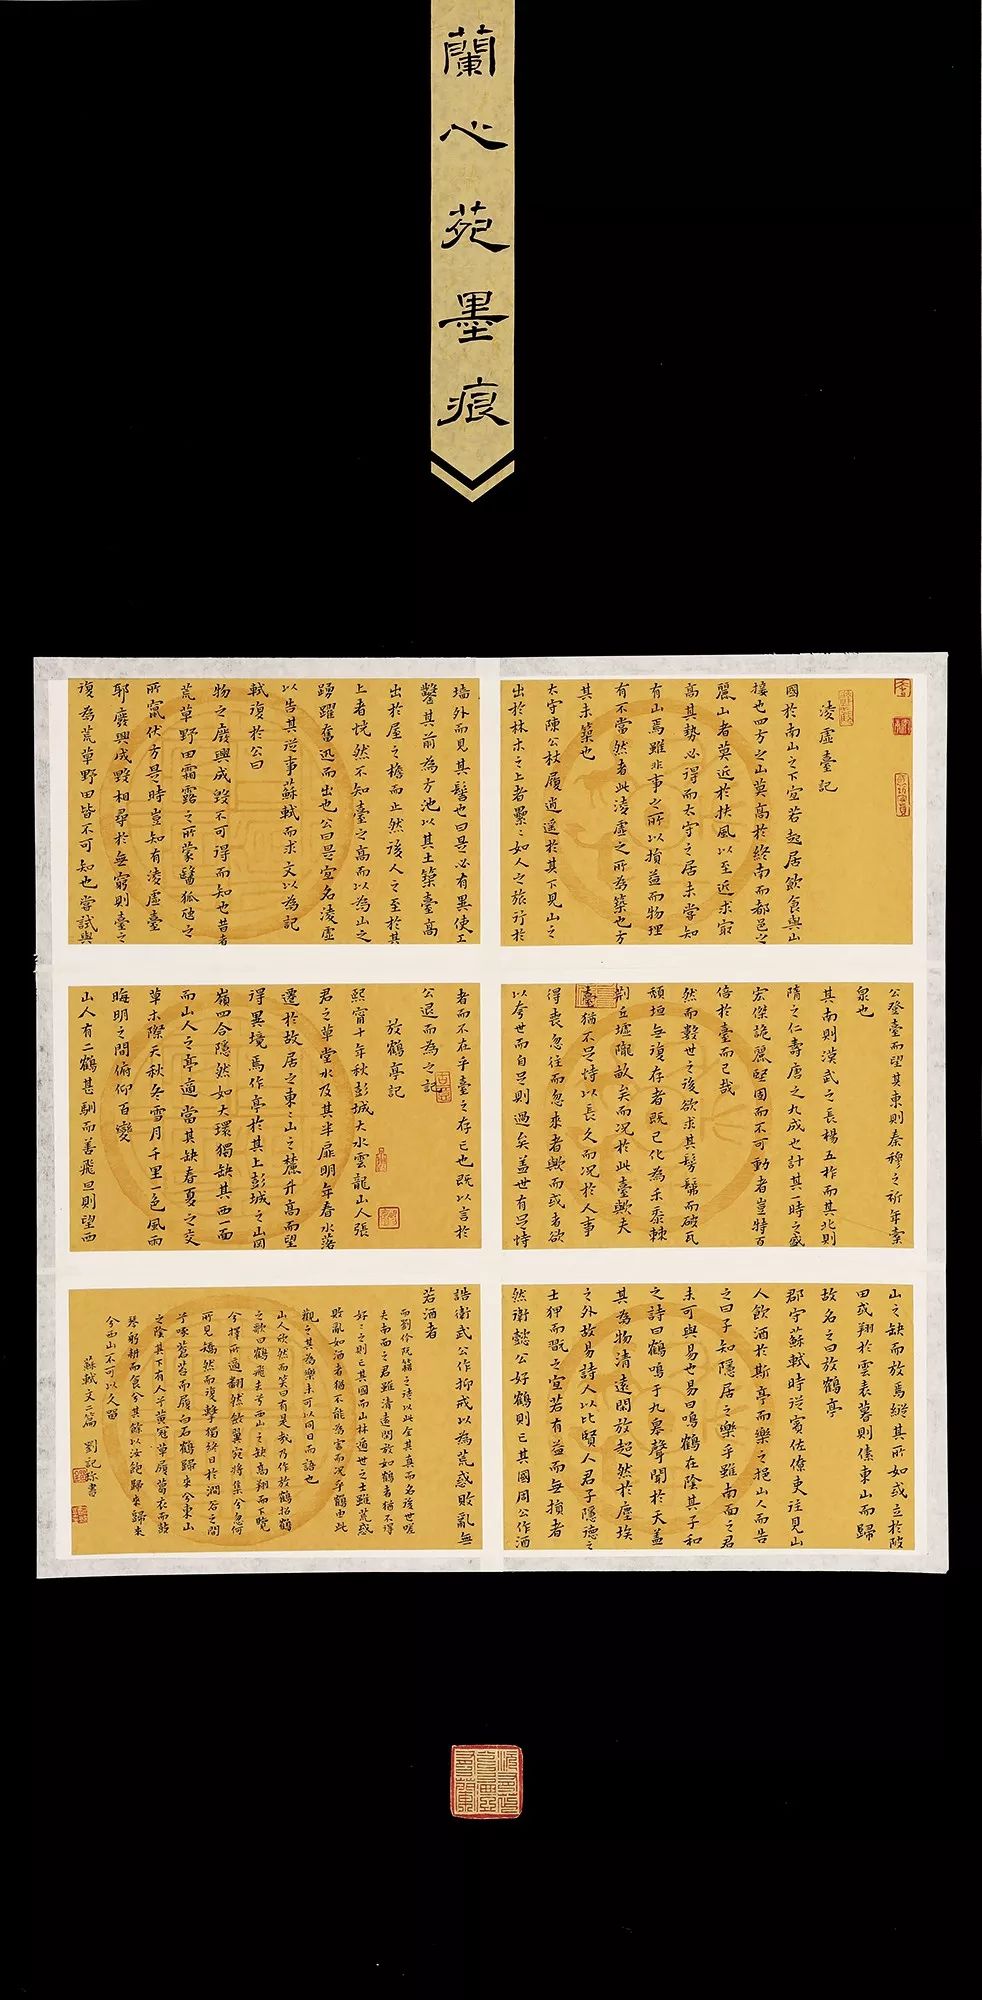 蘭心苑墨痕
凌虛臺記
國於南山之下宜若起居飲食與山
接也四方之山莫高於終南而都邑之
麗山者莫近於扶風以至近求最
高其勢必得而太守之居未嘗知
有山焉雖非事之所以損益而物理
有不當然者此淩虛之所為築也方
其未築也
太守陳公杖履逍遙於其下見山之
出於林木之上者纍〻如人之旅行於
墙外而見其髻也曰是必有異使工
鑿其前為方池以其土築臺高
出於屋之檐而止然後人之至於其
上者恍然不知臺之高而以為山之
踴躍奮迅而出也公曰是宜名淩虛
以告其從事蘇軾而求文以為記
軾復於公曰
物之廢興成毀不可得而知也昔者
荒草野田霜露之所蒙翳狐虺之
所竄伏方是時豈知有淩虛臺
耶廢興成毀相尋於無窮則臺之
復為荒草野田皆不可知也嘗試與
公登臺而望其東則秦穆之祈年橐
泉也
其南則漢武之長楊五柞而其北則
隋之仁壽唐之九成也計其一時之盛
宏傑詭麗堅固而不可動者豈特百
倍於臺而已哉
然而數世之後欲求其髣髴而破瓦
頹垣無復存者既已化為禾黍棘
荆丘墟隴畝矣而况於此臺歟夫
臺猶不足恃以長久而况於人事
得喪忽往而忽來者歟而或者欲
以夸世而自足則過矣蓋世有足恃
者而不在乎臺之存亡也既以言於
公退而為之記
放鶴亭記
熙寧十年秋彭城大水雲龍山人張
君之草堂水及其半扉明年春水落
遷於故居之東〻山之麓升高而望
得異境焉作亭於其上彭城之山岡
嶺四合隱然如大環獨缺其西一面
而山人之亭適當其缺春夏之交
草木際天秋冬雪月千里一色風雨
晦明之間俯仰百變
山人有二鶴甚馴而善飛旦則望西
山之缺而放焉縱其所如或立於陂
田或翔於雲表暮則傃東山而歸
故名之曰放鶴亭
郡守蘇軾時從賓佐僚吏往見山
人飲酒於斯亭而樂之挹山人而告
之曰子知隱居之樂乎雖南面之君
未可與易也易曰鳴鶴在陰其子和
之詩曰鶴鳴于九皋聲聞於天蓋
其為物清遠閑放超然於塵埃
之外故易詩人以比賢人君子隱德之
士狎而翫之宜若有益而無損者
然衛懿公好鶴則亡其國周公作酒
誥衛武公作抑戒以為荒惑敗亂無
若酒者
而劉伶阮籍之徒以此全其真而名後世嗟
夫南面之君雖清遠閑放如鶴者猶不得
好〻之則亡其國而山林遁世之士雖荒惑
敗亂如酒者猶不能為害而况乎鶴由此
觀之其為樂未可以同日而語也
山人欣然而笑曰有是哉乃作放鶴招鶴
之歌曰鶴飛去兮西山之缺高翔而下覽
兮擇所適翻然斂翼宛將集兮忽何
所見矯然而復擊獨終日於澗谷之間
兮啄蒼苔而履白石鶴歸來兮東山
之陰其下有人兮黃冠草屨葛衣而鼓
琴躬耕而食兮其餘以汝飽歸來歸來
兮西山不可以久留
蘇軾文二篇 劉記珍書